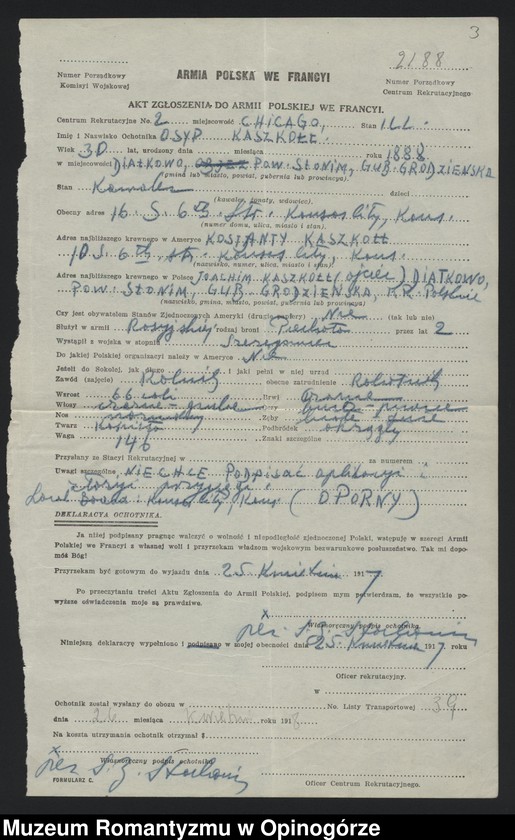 3
2188
Numer Porządkowy
Komisyi Wojskowej
ARMIA POLSKA WE FRANCYI
Numer Porządkowy
Centrum Rekrutacyjnego
AKT ZGŁOSZENIA DO ARMII POLSKIEJ WE FRANCYI.
Centrum Rekrutacyjne No. 2 miejscowość CHICAGO, Stan ILL.
Imię i Nazwisko Ochotnika OSYP KASZKOŁŁ
Wiek 30 lat, urodzony dnia miesiąca roku 1888
w miejscowości DIATKOWO, POW. SŁONIM, GUB. GRODZIEŃSKA
(gmina lub miasto, powiat, gubernia lub prowincya).
Stan Kawaler dzieci
(kawaler, żonaty, wdowiec).
Obecny adres 16 S. 6th Str. Kansas City, Kans.
(numer domu, ulica, miasto i stan).
Adres najbliższego krewnego w Ameryce KOSTANTY KASZKOŁŁ
10 S. 6th str. Kansas City, Kans.
(nazwisko, numer, ulica, miasto i stan).
Adres najbliższego krewnego w Polsce JOACHIM KASZKOŁŁ (ojciec) DIATKOWO,
POW. SŁONIM, GUB. GRODZIEŃSKA,
(nazwisko, gmina, miasto, powiat, gubernia lub prowincya).
Czy jest obywatelem Stanów Zjednoczonych Ameryki (drugie papiery) Nie (tak lub nie)
Służył w armii Rosyjskiej rodzaj broni Piechota przez lat 2
Wystąpił z wojska w stopniu Szeregowca
Do jakiej Polskiej organizacyi należy w Ameryce Nie
Jeżeli do Sokołej, jak długo i jaki pełni w niej urząd
Zawód (zajęcie) Rolnik obecne zatrudnienie Robotnik
Wzrost 66 cali Brwi czarne
Włosy czarne
Nos Zęby
Twarz Podbródek okrągły
Waga 146 Znaki szczególne
Przysłany ze Stacyi Rekrutacyjnej w za numerem
Uwagi szczególne NIECHCE PODPISAĆ aplikacyi i
złożyć przysięgi.
Local Board Kansas City, Kans (OPORNY)
DEKLARACYA OCHOTNIKA.
Ja niżej podpisany pragnąc walczyć o wolność i niepodległość zjednoczonej Polski, wstępuję w szeregi Armii
Polskiej we Francyi z własnej woli i przyrzekam władzom wojskowym bezwarunkowe posłuszeństwo. Tak mi dopo-
móż Bóg!
Przyrzekam być gotowym do wyjazdu dnia 25 Kwietnia 1917
Po przeczytaniu treści Aktu Zgłoszenia do Armii Polskiej, podpisem mym potwierdzam, że wszystkie po-
wyższe oświadczenia moje są prawdziwe.
X
Własnoręczny podpis ochotnika.
Niniejszą deklaracyę wypełniono i podpisano w mojej obecności dnia 25 Kwietnia 1917 roku
Oficer rekrutacyjny.
w
Ochotnik został wysłany do obozu w No. Listy Transportowej 39
dnia 26 miesiąca Kwietnia roku 1918
Na koszta utrzymania ochotnik otrzymał $
X
Własnoręczny podpis ochotnika.
FORMULARZ C.
Oficer Centrum Rekrutacyjnego.
Muzeum Romantyzmu w Opinogórze